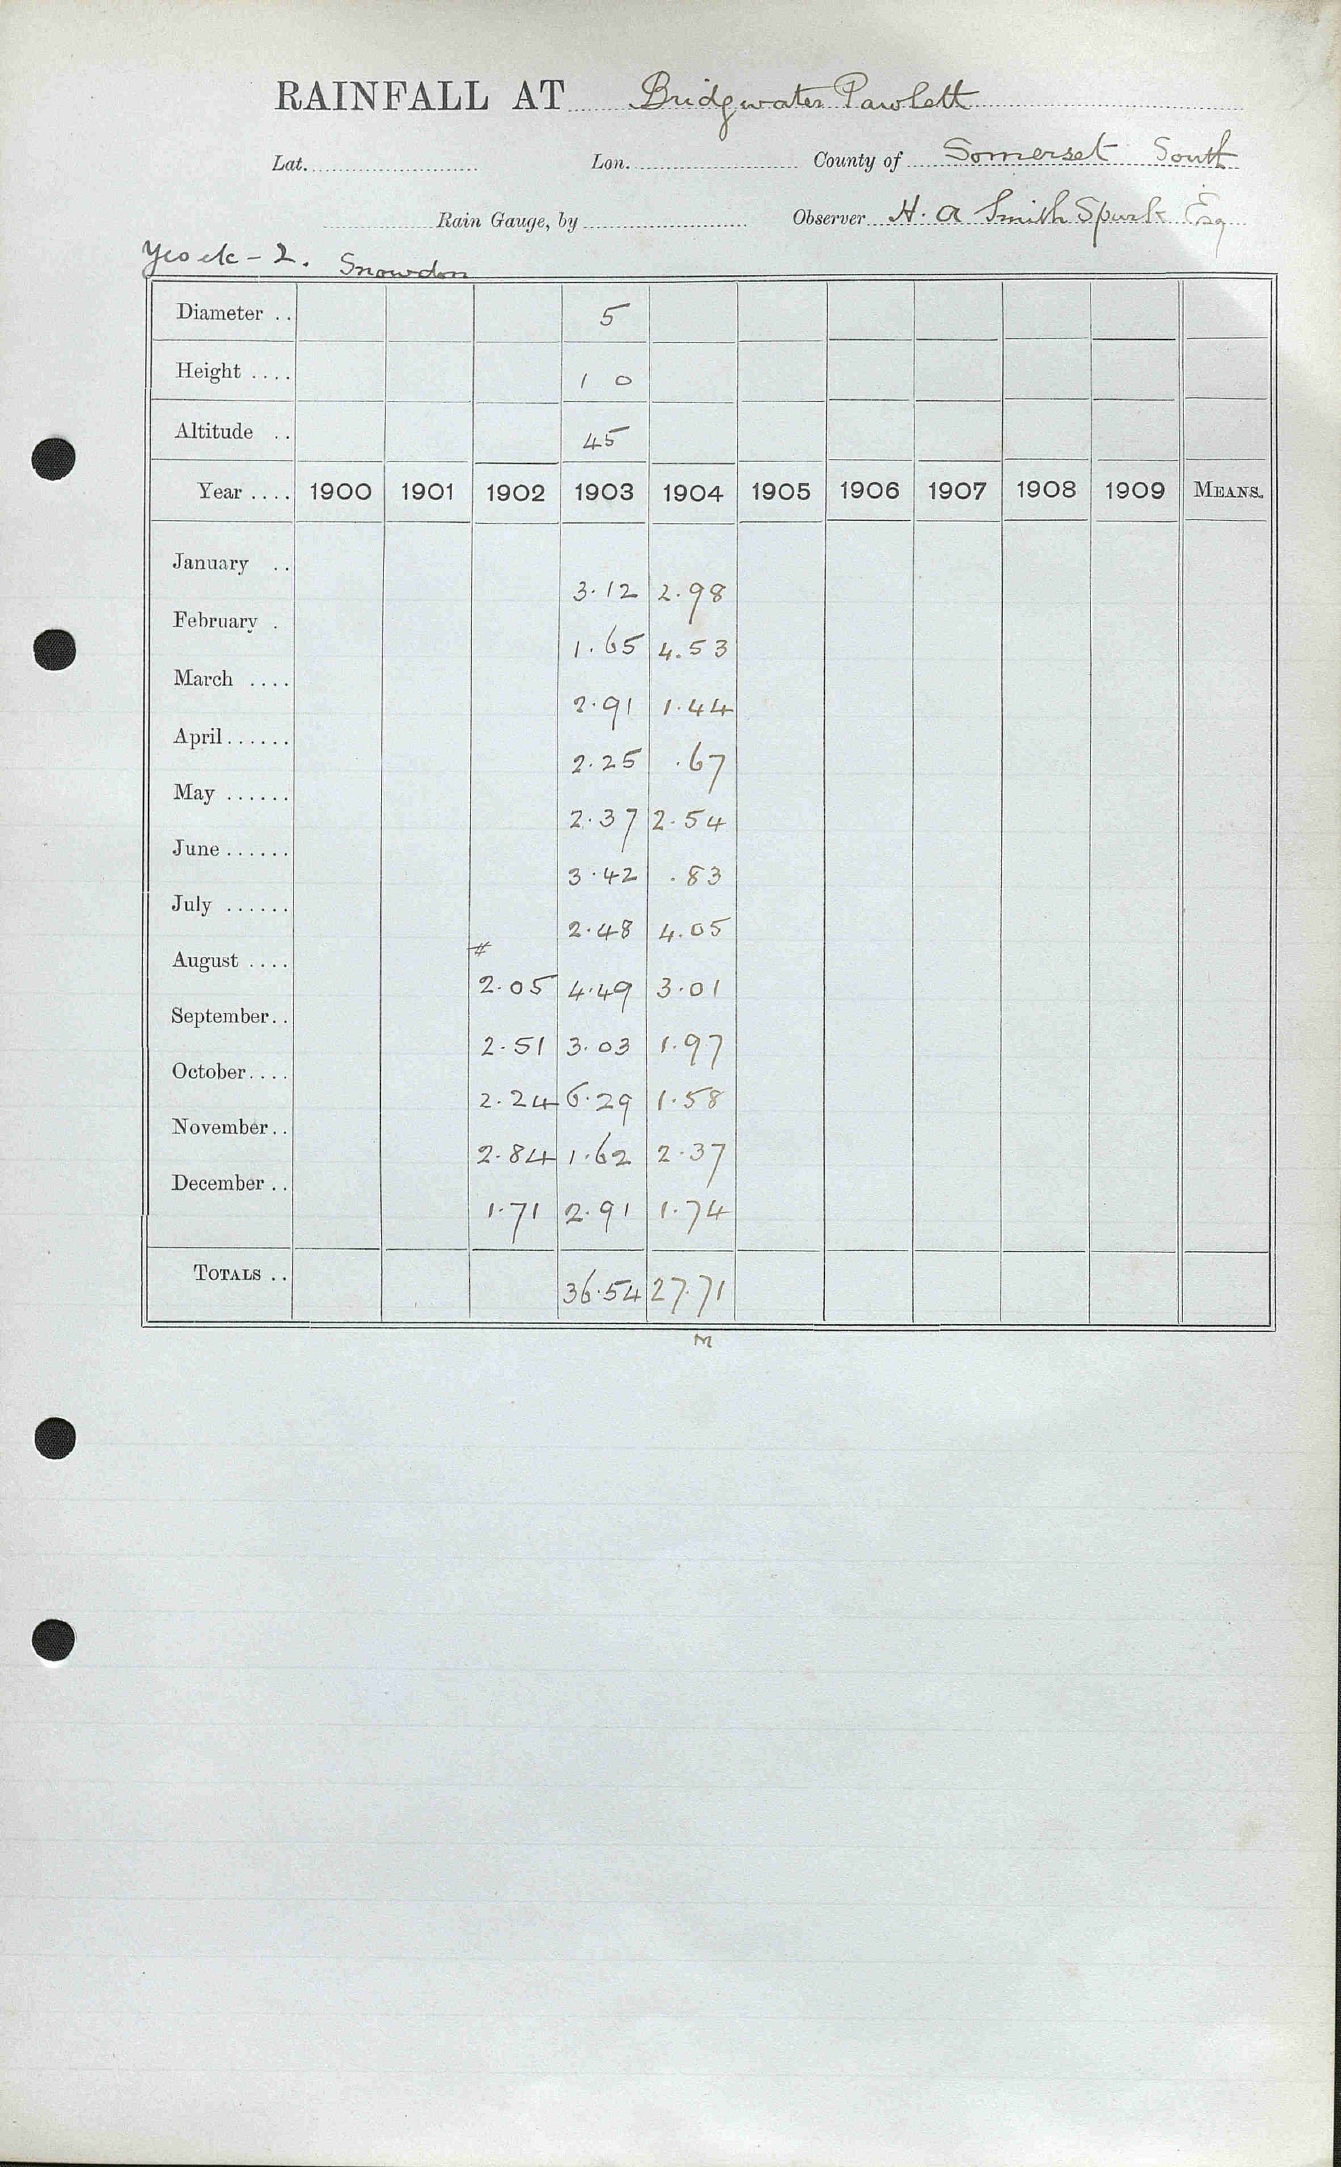 RAINFALL AT Bridgwater Pawlett
Lat. Lon. County of Somerset South
Rain Gauge, by Observer H. A Smith Spurk Esq
- 2. Snowdon
Diameter . . 5
Height . . . . 1 0
Altitude . . 45
Year . . . . 1900 1901 1902 1903 1904 1905 1906 1907 1908 1909 MEANS.
January . . 3.12 2.98
February . 1.65 4.53
March . . . . 2.91 1.44
April . . . . . . 2.25 .67
May . . . . . . 2.37 2.54
June . . . . . . 3.42 .83
July . . . . . . 2.48 4.05
#
August . . . . 2.05 4.49 3.01
September . . 2.51 3.03 1.97
October . . . . 2.24 6.29 1.58
November . . 2.84 1.62 2.37
December . . 1.71 2.91 1.74
TOTALS . . 36.54 27.71
M